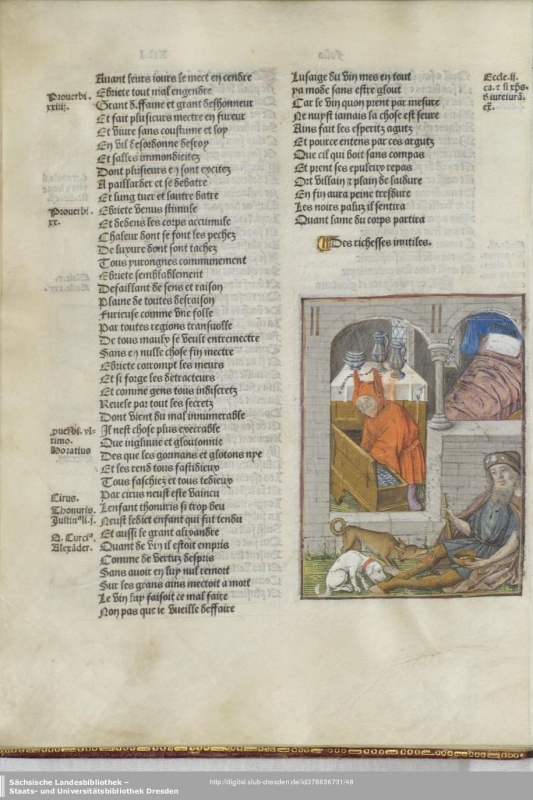 Auant leurs iours se mect en cendre
Ebriete tout mal engendre
Grant diffame et grant deshonneur
Et fait plusieurs mectre en fureur
Et viure sans coustume et loy
En vil desordonne desroy
Et salles immondicitez
Dont plusieurs en sont excitez
A paillarder et se debatre
Et lung tuer et lautre batre
Ebriete Venus stimule
Et dedens les corps accumule
Chaleur dont se font les pechez
De luxure dont sont tachez
Tous yurongnes communement
Ebriete semblablement
Deffaillant de sens et raison
Plaine de toutes desraison
Furieuse comme vne folle
Par toutes regions transuolle
De tous maulx se veult entremectre
Sans en nulle chose fin mectre
Ebriete corrompt les meurs
Et si forge les detracteurs
Et comme gens tous indiscretz
Reuele par tout les secretz
Dont vient du mal innumerable
Il nest chose plus execrable
Que ingluuie et gloutonnie
Des que les gormans et glotons nye
Et les rend tous fastidieux
Tous faschiez et tous tedieux
Par cirus neust este vaincu
Lenfant thomiris si trop beu
Neust ledict enfant qui fut tendu
Et aussi le grant alixandre
Quant de vin il estoit empris
Comme de vertuz despris
Sans auoir en luy nul remort
Sur les grans ains mectoit a mort
Le vin luy faisoit ce mal faire
Non pas que ie vueille deffaire
Prouerbi.
xxiii.
Prouerbi.
xx.
puerbi. vl-
timo.
Horatius
Cirus.
Thomiris.
Justinꝰ li. j.
Q. Curciꝰ.
Alexãder.
Lusaige du vin mes en tout
ya mode sans estre glout
Car le vin quon prent par mesure
Ne nuyst iamais la chose est seure
Ains fait les esperitz agutz
Et pource entens par ces argutz
Que cil qui boit sans compas
Et prent ses epuleux repas
Ort villain et plain de laidure
En fin aura peine tresdure
Les noirs paluz il sentira
Quant lame du corps partira
Des richesses inutiles.
Eccle. ij.
Sächsische Landesbibliothek –
Staats- und Universitätsbibliothek Dresden
http://digital.slub-dresden.de/id378636731/48